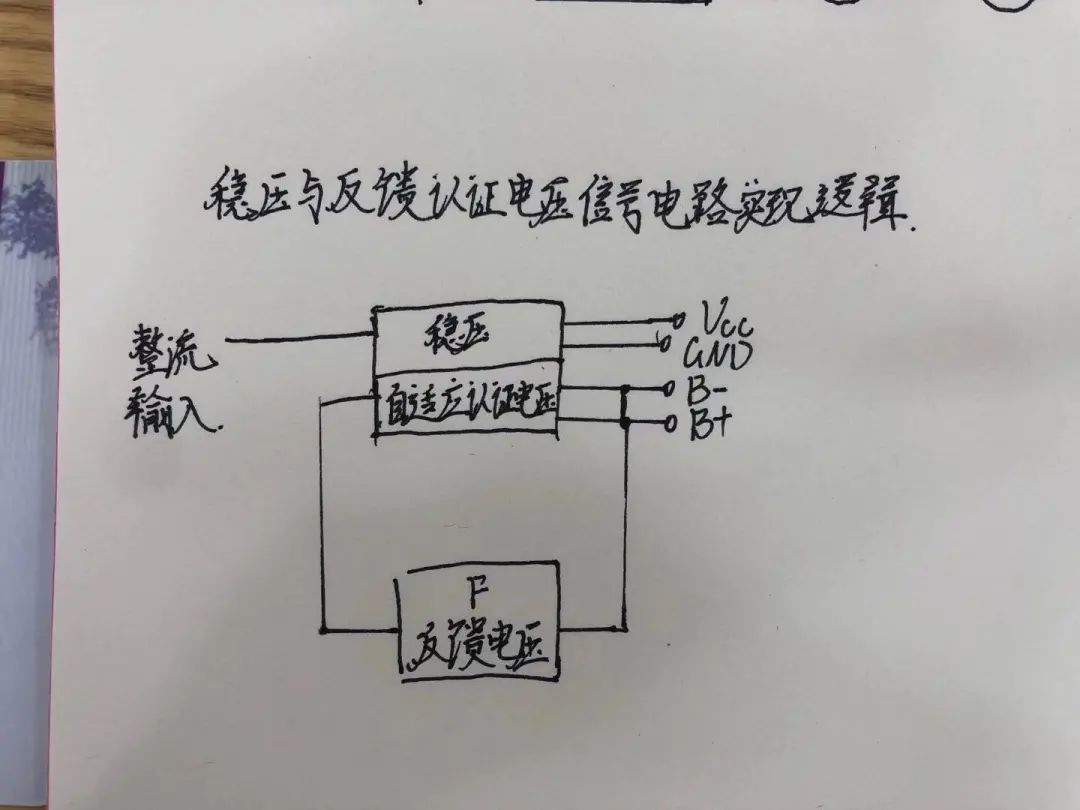 稳压与反馈认证电压信号电路实现逻辑.
整流
输入.
稳压
自适应认证电压
Vcc
GND
B-
B+
F
反馈电压